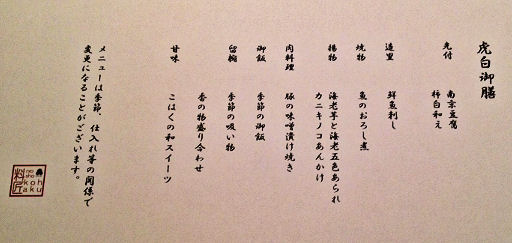 虎白御膳
先付 南京豆腐
柿白和え
造里 鮮魚刺し
焼物 魚のおろし煮
揚物 海老芋と海老五色あられ
カニキノコあんかけ
肉料理 豚の味噌漬け焼き
御飯 季節の御飯
留椀 季節の吸い物
香の物盛り合わせ
甘味 こはくの和スイーツ
メニューは季節、仕入れ等の関係で
変更になることがございます。
料庁
koh
aku